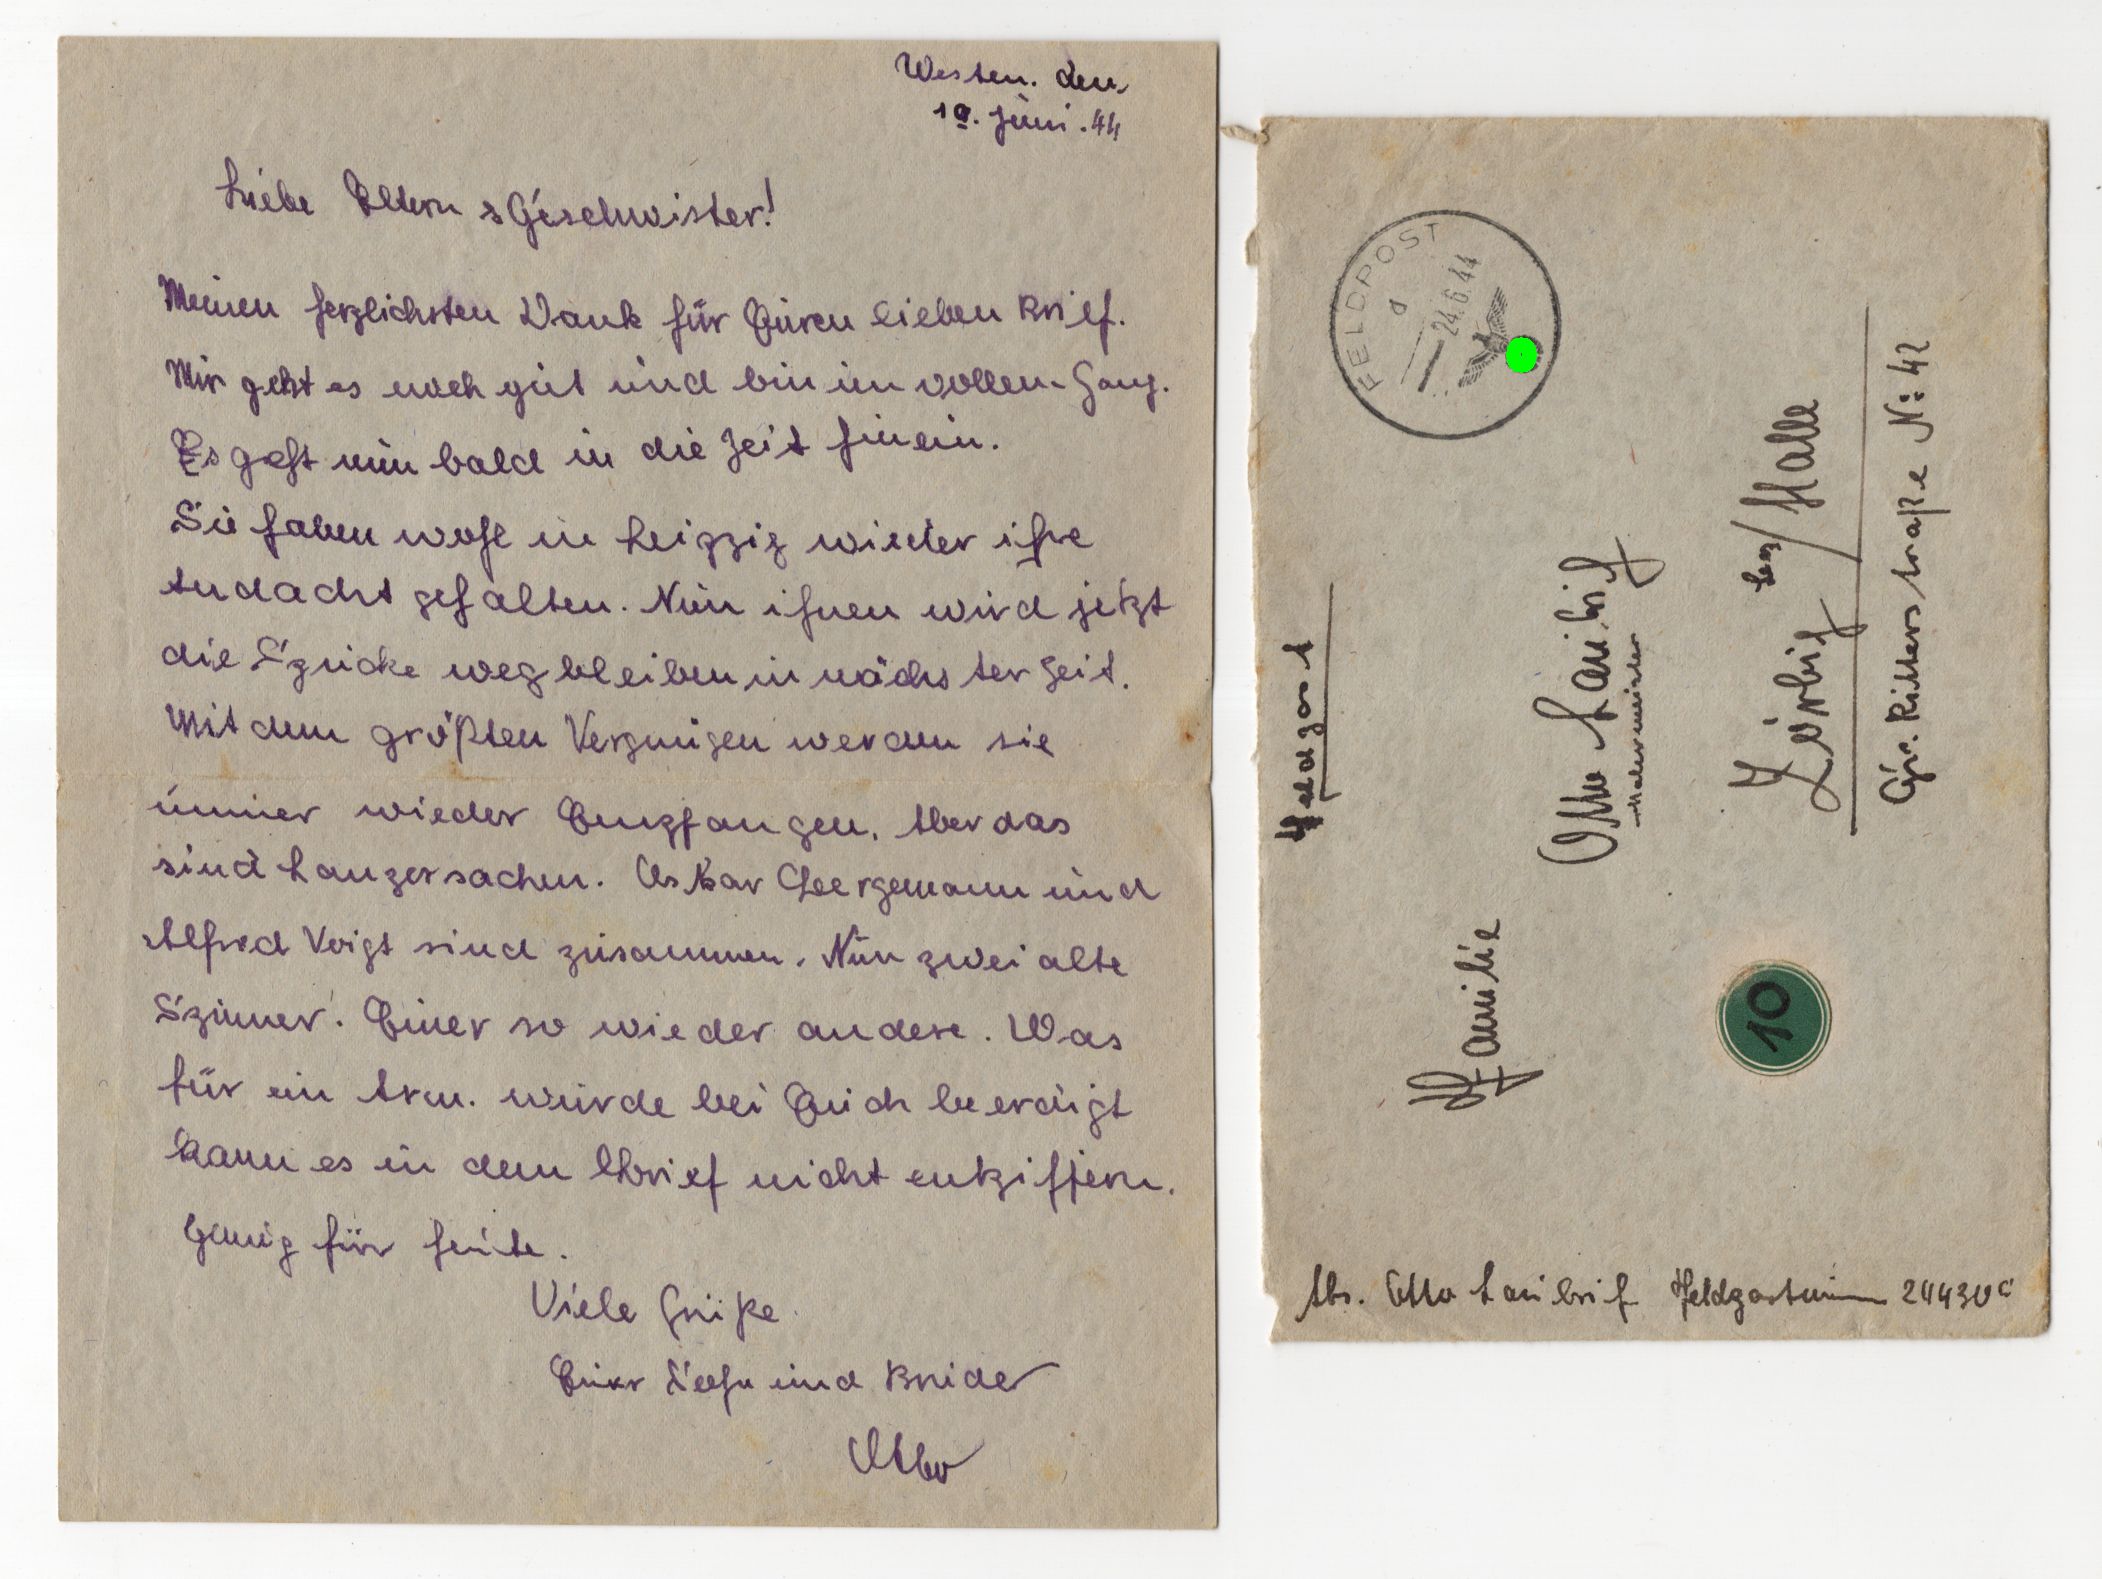 Westen. den
19. Juni. 44
Liebe Eltern & Geschwister!
Meinen herzlichsten Dank für Euren lieben Brief.
Mir geht es noch gut und bin im vollen Gang.
Es geht nun bald in die Zeit hinein.
Sie haben wohl in Leipzig wieder ihre
Andacht gehalten. Nun ihnen wird jetzt
die Spucke wegbleiben in nächster Zeit.
Mit dem größten Vergnügen werden sie
immer wieder Empfangen. Aber das
sind Panzersachen. Oskar und
Alfred Voigt sind zusammen. Nun zwei alte
Spinner. Einer so wie der andere. Was
für ein Arm. wurde bei Euch beerdigt
kann es in dem Brief nicht entziffern.
Genug für heute.
Viele Grüße
Euer Sohn und Bruder
Otto
FELDPOST
d
24.6.44
Feldpost
Familie
Otto Laubrif
Malermeister
Zörbig bez/Halle
Gr. Ritterstraße N: 42
10
Abs. Otto Laubrif Feldpostnum 24430 c